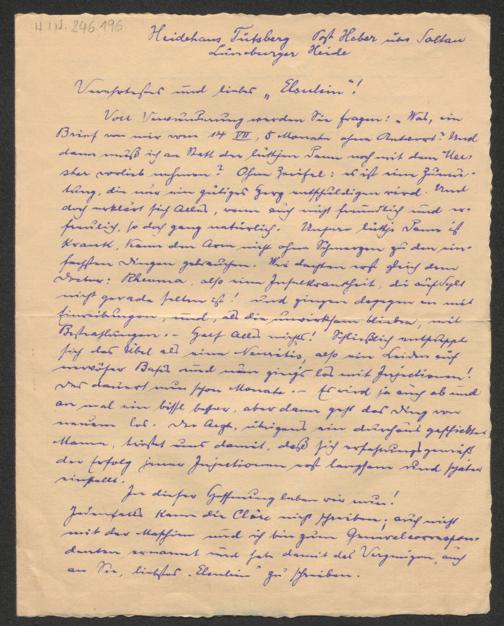 H.I.N. 246 196
Heidehaus Tütsberg Post Heber über Soltau
Lüneburger Heide
Verehrtestes und liebes „Elserlein"!
Voll Verwunderung werden Sie fragen: „Was, ein
Brief von mir vom 14 VII, 5 Monate ohne Antwort? Und
dann muß ich an Statt der lüttjen Dame noch mit dem
vorlieb nehmen? Ohne Zweifel: es ist eine Zumu-
tung, die nur ein gütiges Herz entschuldigen wird. Und
doch erklärt sich Alles, wenn auch nicht freundlich und er-
freulich, so doch ganz natürlich. Unsere lüttje Dame ist
krank, kann den Arm nicht ohne Schmerzen zu den ein-
fachsten Dingen gebrauchen. Wir dachten erst gleich dem
Doctor: Rheuma, also eine Inselkrankheit, die auf Sylt
nicht gerade selten ist! und gingen dagegen an mit
Einreibungen, und, als die unwirksam blieben, mit
Bestrahlungen. – Half Alles nichts! Schließlich entpuppte
sich das Übel als eine Neuritis, also ein Leiden auf
nervöser Basis und nun ging's los mit Injectionen!
Das dauert nun schon Monate. – Es wird ja auch ab und
an mal ein bissl besser, aber dann geht das Ding von
neuem los. Der Arzt, übrigens ein durchaus geschickter
Mann, tröstet uns damit, daß sich erfahrungsgemäß
der Erfolg jener Injectionen erst langsam und später
einstellt.
In dieser Hoffnung leben wir nun!
Jedenfalls kann die Cläre nicht schreiben; auch nicht
mit der Maschine und ich bin zum Generalcorrespon-
denten ernannt und habe damit das Vergnügen, auch
an Sie, liebstes „Elserlein" zu schreiben.